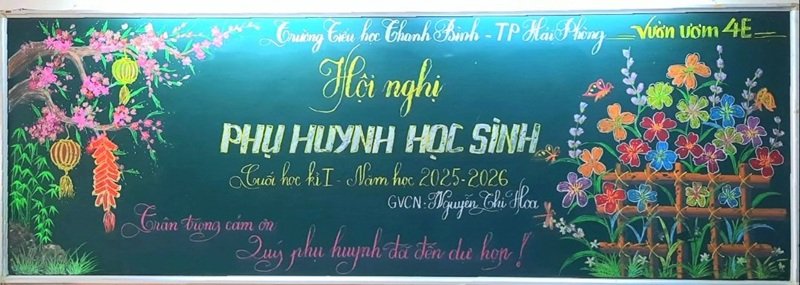 Trường Tiểu học Thanh Bình - TP Hải Phòng Vườn ươm 4E
Hội nghị
PHỤ HUYNH HỌC SINH
Cuối học kì I - Năm học 2025-2026
GVCN: Nguyễn Thị Hoa
Trân trọng cảm ơn
Quý phụ huynh đã đến dự họp!